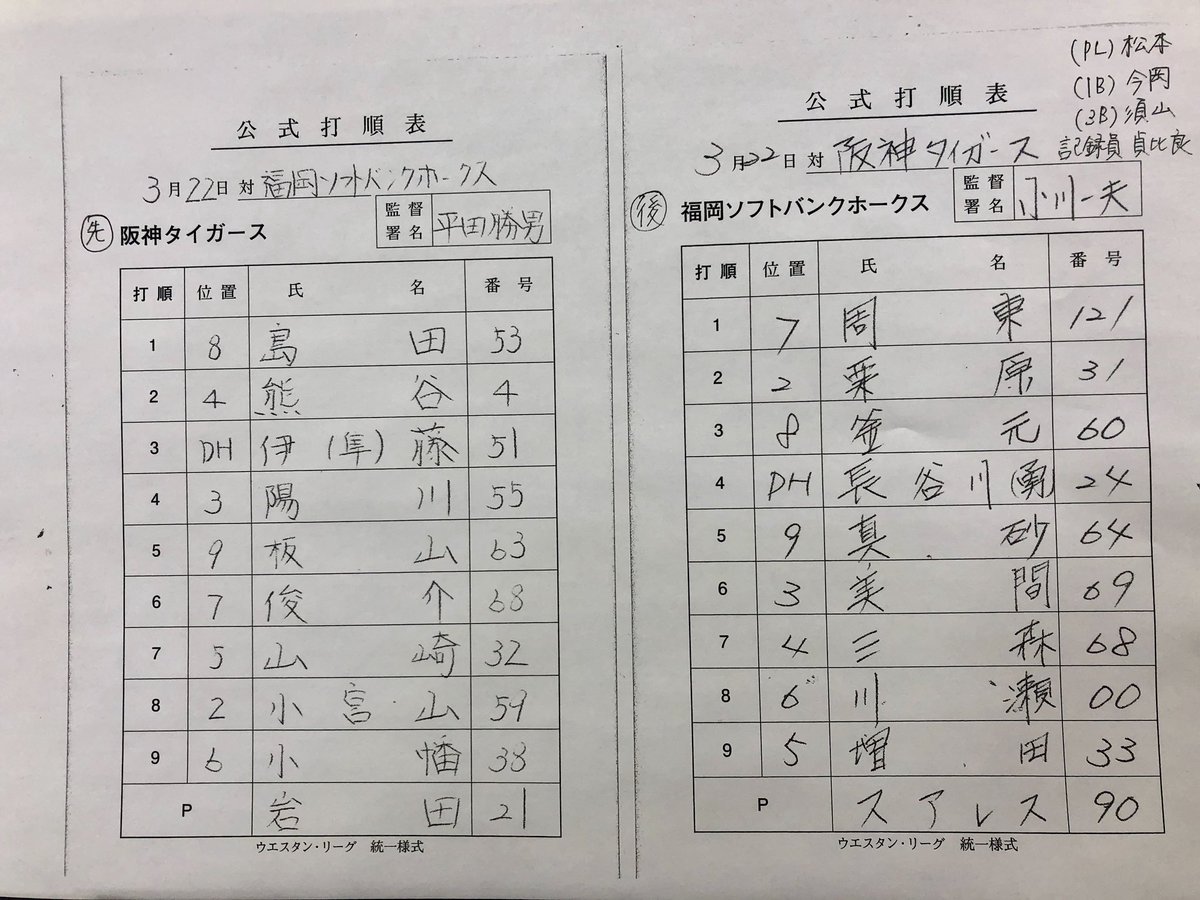 公式打順表
3月22日 対 福岡ソフトバンクホークス
先 阪神タイガース 監督署名 平田勝男
打順 位置 氏名 番号
1 8 島田 53
2 4 熊谷 4
3 DH 伊(隼)藤 51
4 3 陽川 55
5 9 板山 63
6 7 俊介 68
7 5 山崎 32
8 2 小宮山 59
9 6 小幡 38
P 岩田 21
ウエスタン・リーグ 統一様式
(PL) 松本
(1B) 今岡
(3B) 須山
記録員 貞比良
公式打順表
3月22日 対 阪神タイガース
後 福岡ソフトバンクホークス 監督署名 小川一夫
打順 位置 氏名 番号
1 7 周東 121
2 2 栗原 31
3 8 釜元 60
4 DH 長谷川(勇) 24
5 9 真砂 64
6 3 美間 69
7 4 三森 68
8 6 川瀬 00
9 5 増田 33
P スアレス 90
ウエスタン・リーグ 統一様式